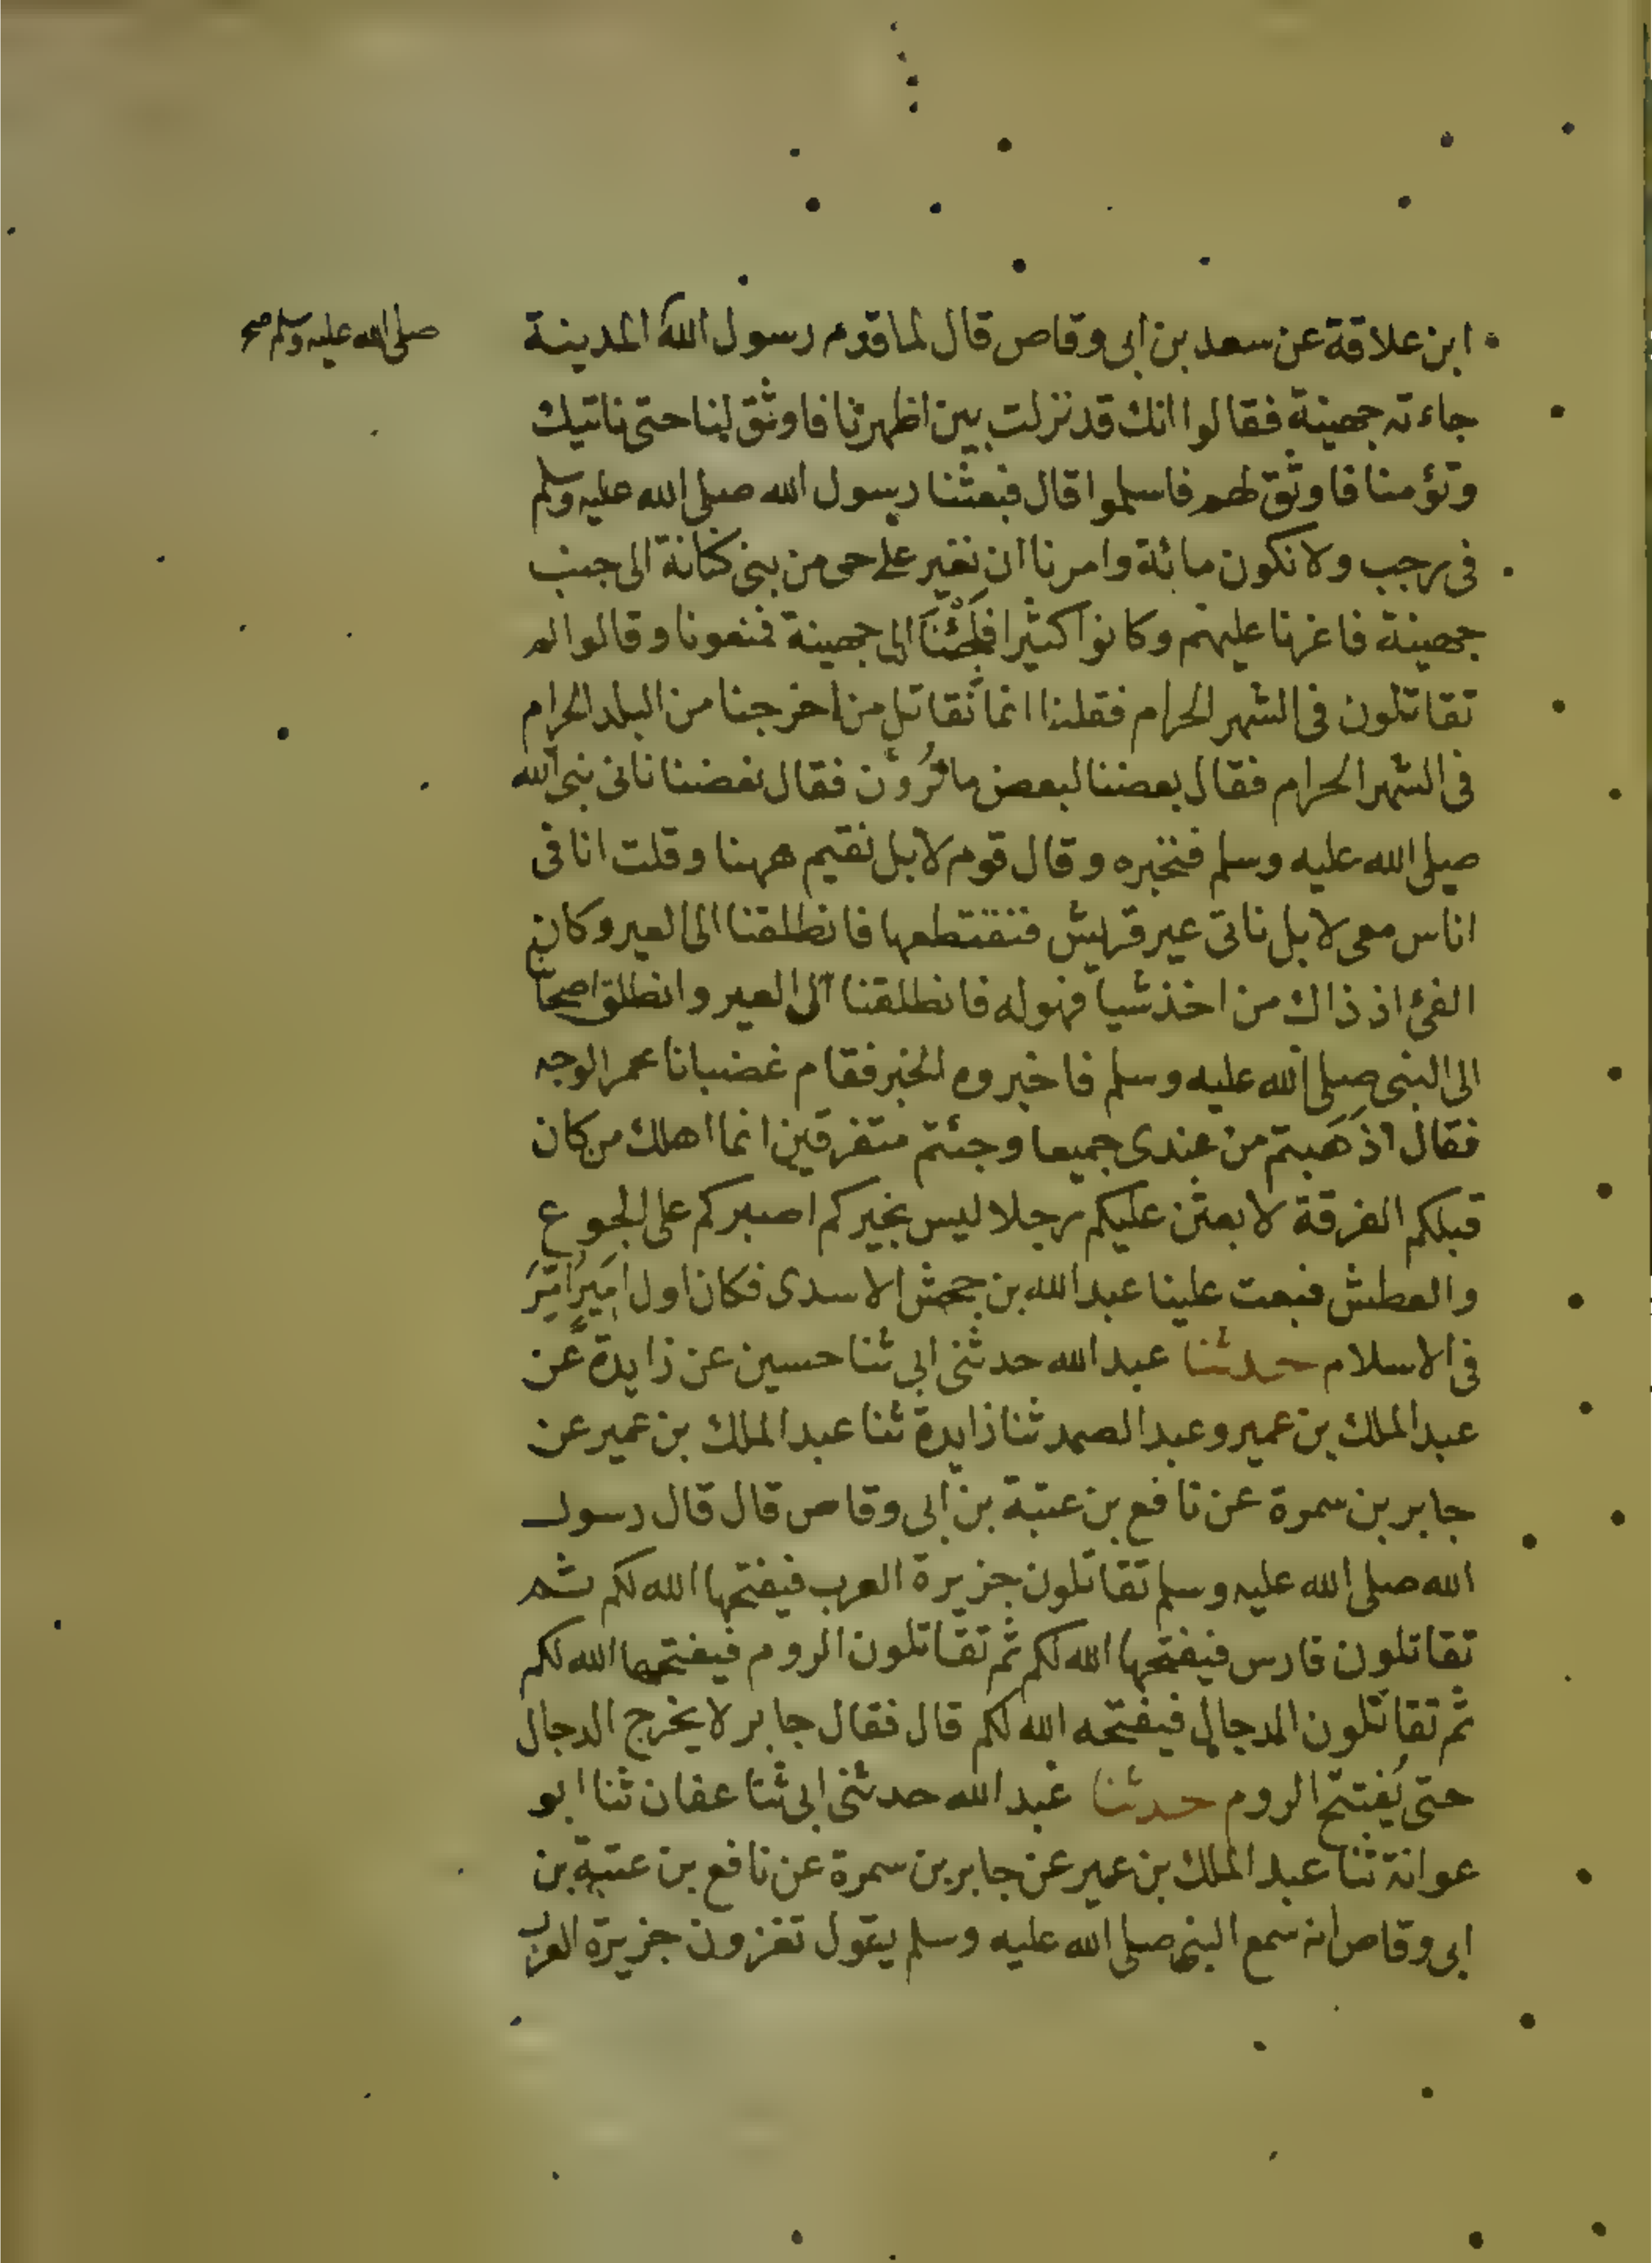 ابن علاقة عن سعد بن ابى وقاص قال لما قدم رسول الله المدينة
صلى الله عليه وسلم صح
جاءته جهينة فقالوا انك قد نزلت بين اظهرنا فاوثق لنا حتى ناتيك
وتؤمنا فاوثق لهم فاسلموا قال فبعثنا رسول الله صلى الله عليه وسلم
فى رجب ولا نكون مائة وامرنا ان نغير على حى من بنى كنانة الى جنب
جهينة فاغرنا عليهم وكانوا كثيرا فلجئنا الى جهينة فمنعونا وقالوا لم
تقاتلون فى الشهر الحرام فقلنا انما نقاتل من اخرجنا من البلد الحرام
فى الشهر الحرام فقال بعضنا لبعض ما ترون فقال بعضنا ناتى نبى الله
صلى الله عليه وسلم فنخبره وقال قوم لا بل نقيم ههنا وقلت انا فى
اناس معى لا بل ناتى عير قريش فنقتطعها فانطلقنا الى العير وكان
الفئ اذ ذاك من اخذ شيا فهو له فانطلقنا الى العير وانطلق اصحابنا
الى النبى صلى الله عليه وسلم فاخبروه الخبر فقام غضبانا محمر الوجه
فقال اذهبتم من عندى جميعا وجئتم متفرقين انما اهلك من كان
قبلكم الفرقة لابعثن عليكم رجلا ليس بخيركم اصبركم على الجوع
والعطش فبعث علينا عبد الله بن جحش الاسدى فكان اول امير امر
فى الاسلام حدثنا عبد الله حدثنى ابى ثنا حسين عن زايدة عن
عبد الملك بن عمير وعبد الصمد ثنا زايدة ثنا عبد الملك بن عمير عن
جابر بن سمرة عن نافع بن عتبة بن ابى وقاص قال قال رسول
الله صلى الله عليه وسلم تقاتلون جزيرة العرب فيفتحها الله لكم ثم
تقاتلون فارس فيفتحها الله لكم ثم تقاتلون الروم فيفتحها الله لكم
ثم تقاتلون الدجال فيفتحه الله لكم قال فقال جابر لا يخرج الدجال
حتى يُفتتح الروم حدثنا عبد الله حدثنى ابى ثنا عفان ثنا ابو
عوانة ثنا عبد الملك بن عمير عن جابر بن سمرة عن نافع بن عتبة بن
ابى وقاص انه سمع النبى صلى الله عليه وسلم يقول تغزون جزيرة العرب